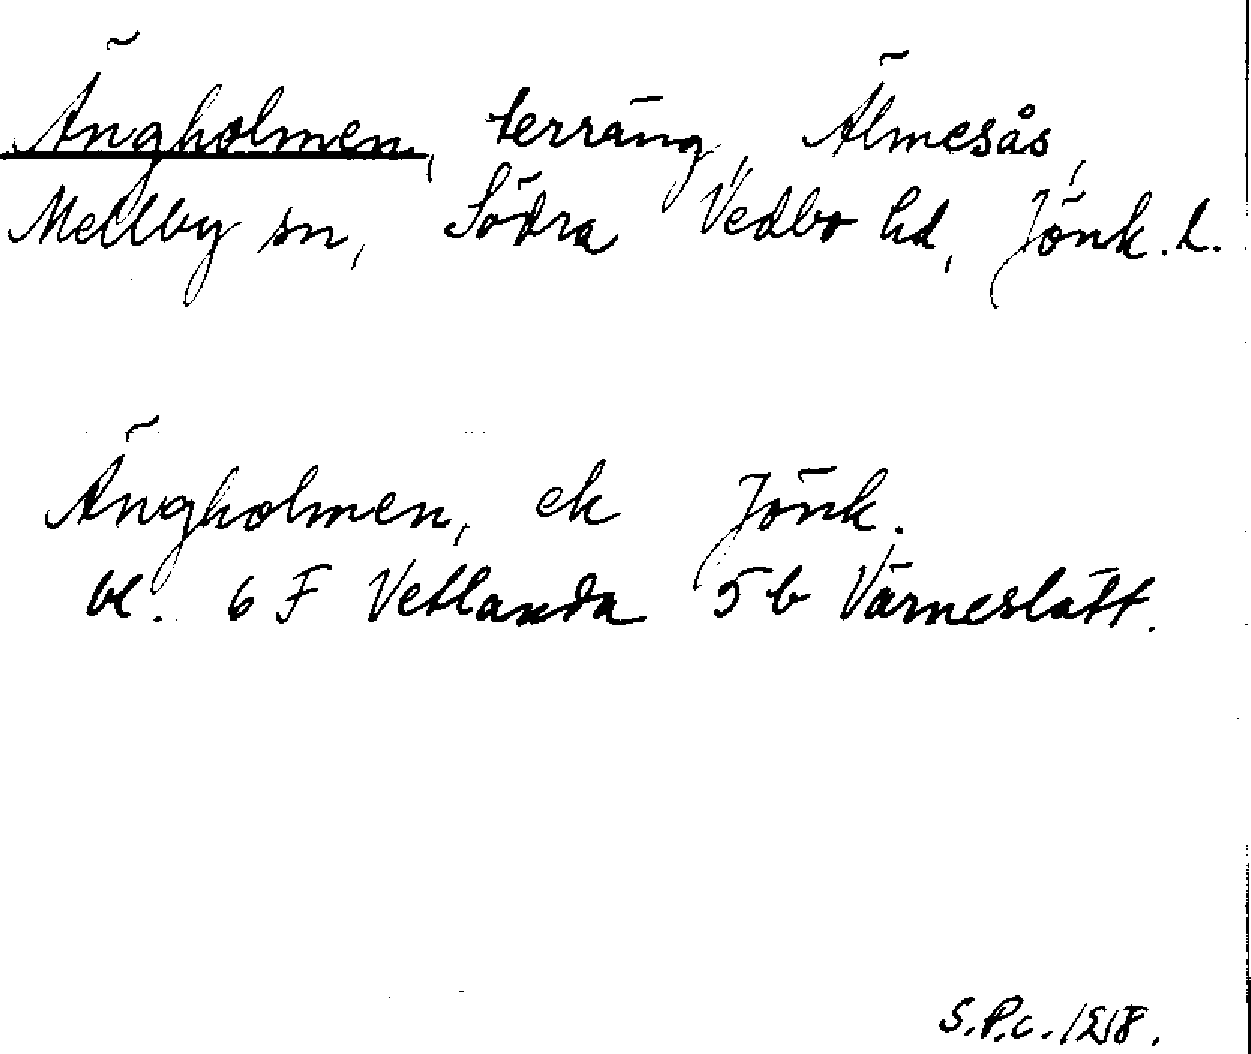 Ängholmen, terräng, Älmesås,
Mellby sn, Södra Vedbo hd, Jönk. L.
Ängholmen, ek Jönk.
bl. 6 F Vetlanda 5 b Värneslätt.
S.P.c.